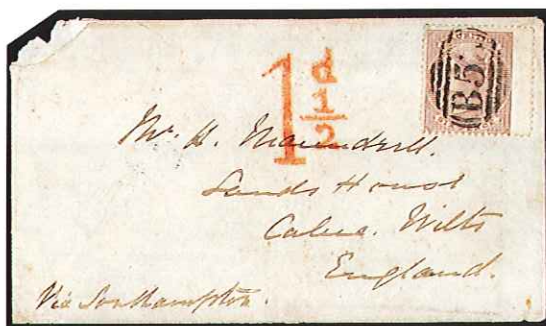 1 d 1/2
B53
Mr. H. Maundrell.
Sands House
Calne. Wilts
England.
Via Southampton.